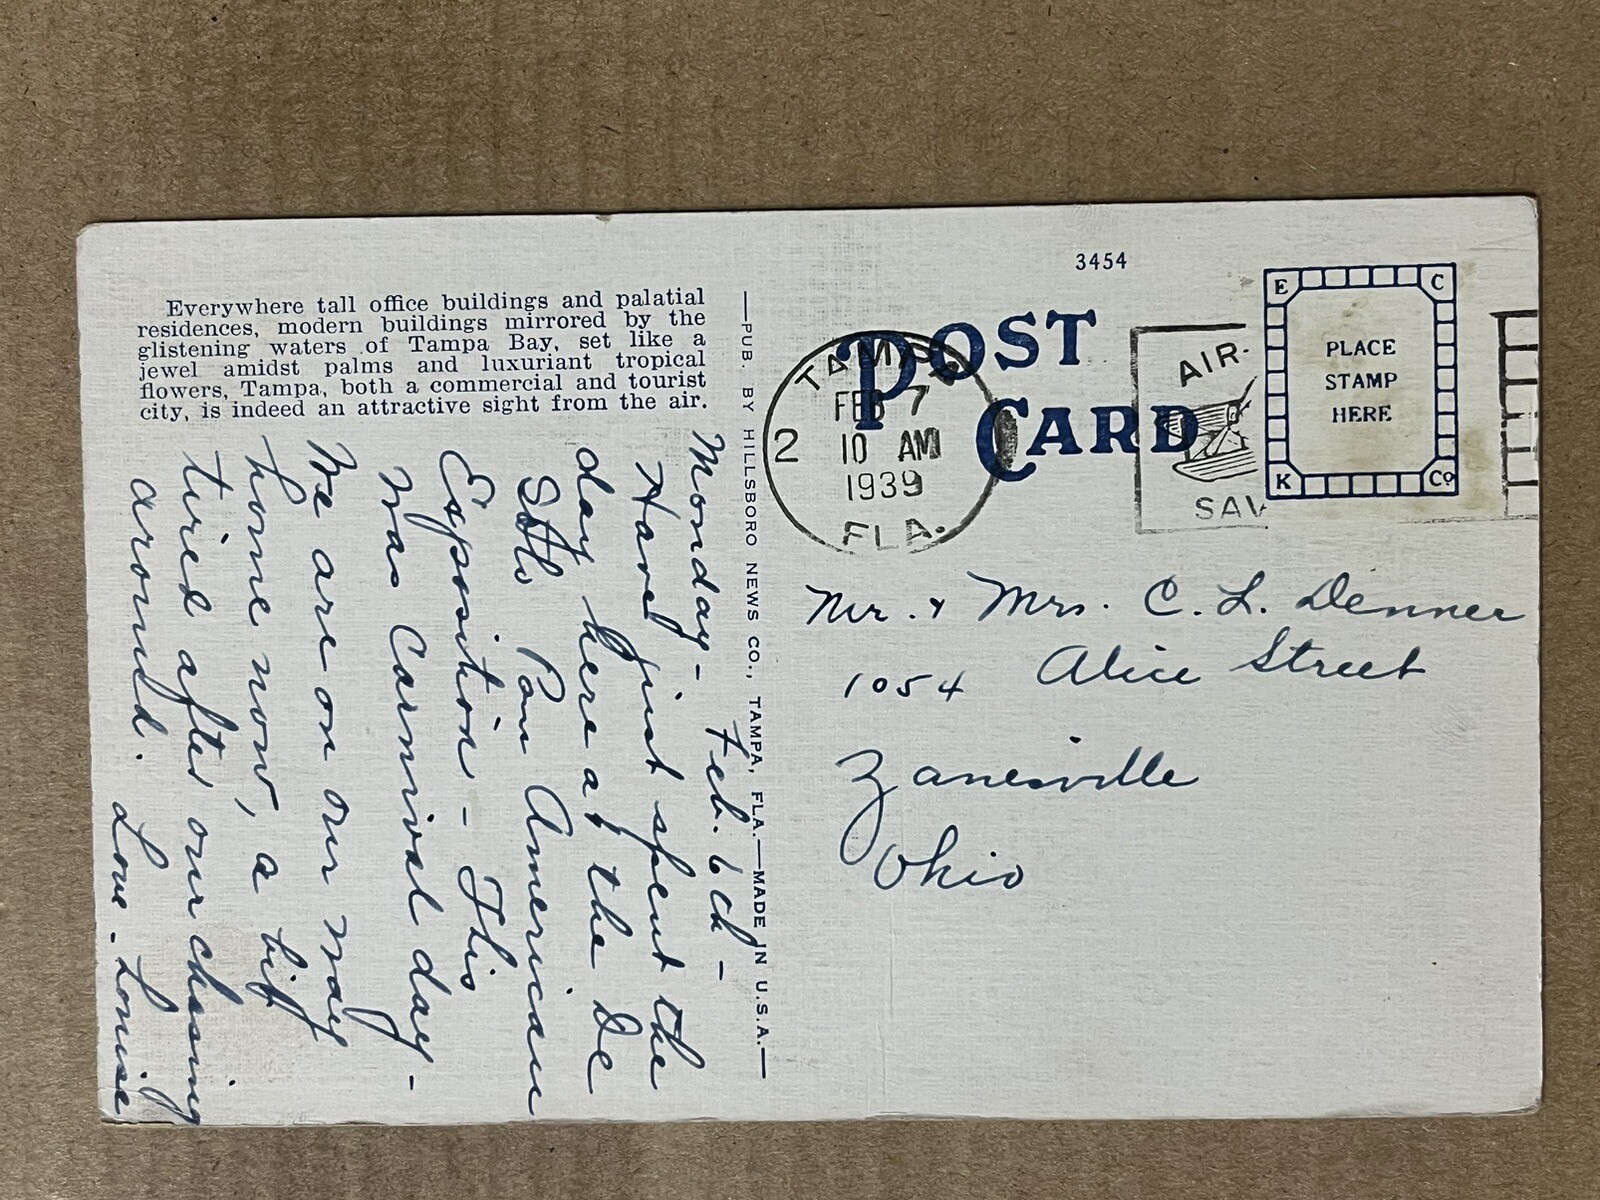 Everywhere tall office buildings and palatial
residences, modern buildings mirrored by the
glistening waters of Tampa Bay, set like a
jewel amidst palms and luxuriant tropical
flowers, Tampa, both a commercial and tourist
city, is indeed an attractive sight from the air.
Monday - Feb. 6th -
Have just spent the
day here at the De
Soto Pan American
Exposition - This
was Carnival day -
We are on our way
home now, a bit
tired after our chasing
around. Love - Louise
—PUB. BY HILLSBORO NEWS CO., TAMPA, FLA.—MADE IN U.S.A.—
3454
POST
CARD
TAMPA
FEB 7
2 10 AM
1939
FLA.
AIR-
SAV
E C
PLACE
STAMP
HERE
K Co
Mr. & Mrs. C. L. Denner
1054 Alice Street
Zanesville
Ohio